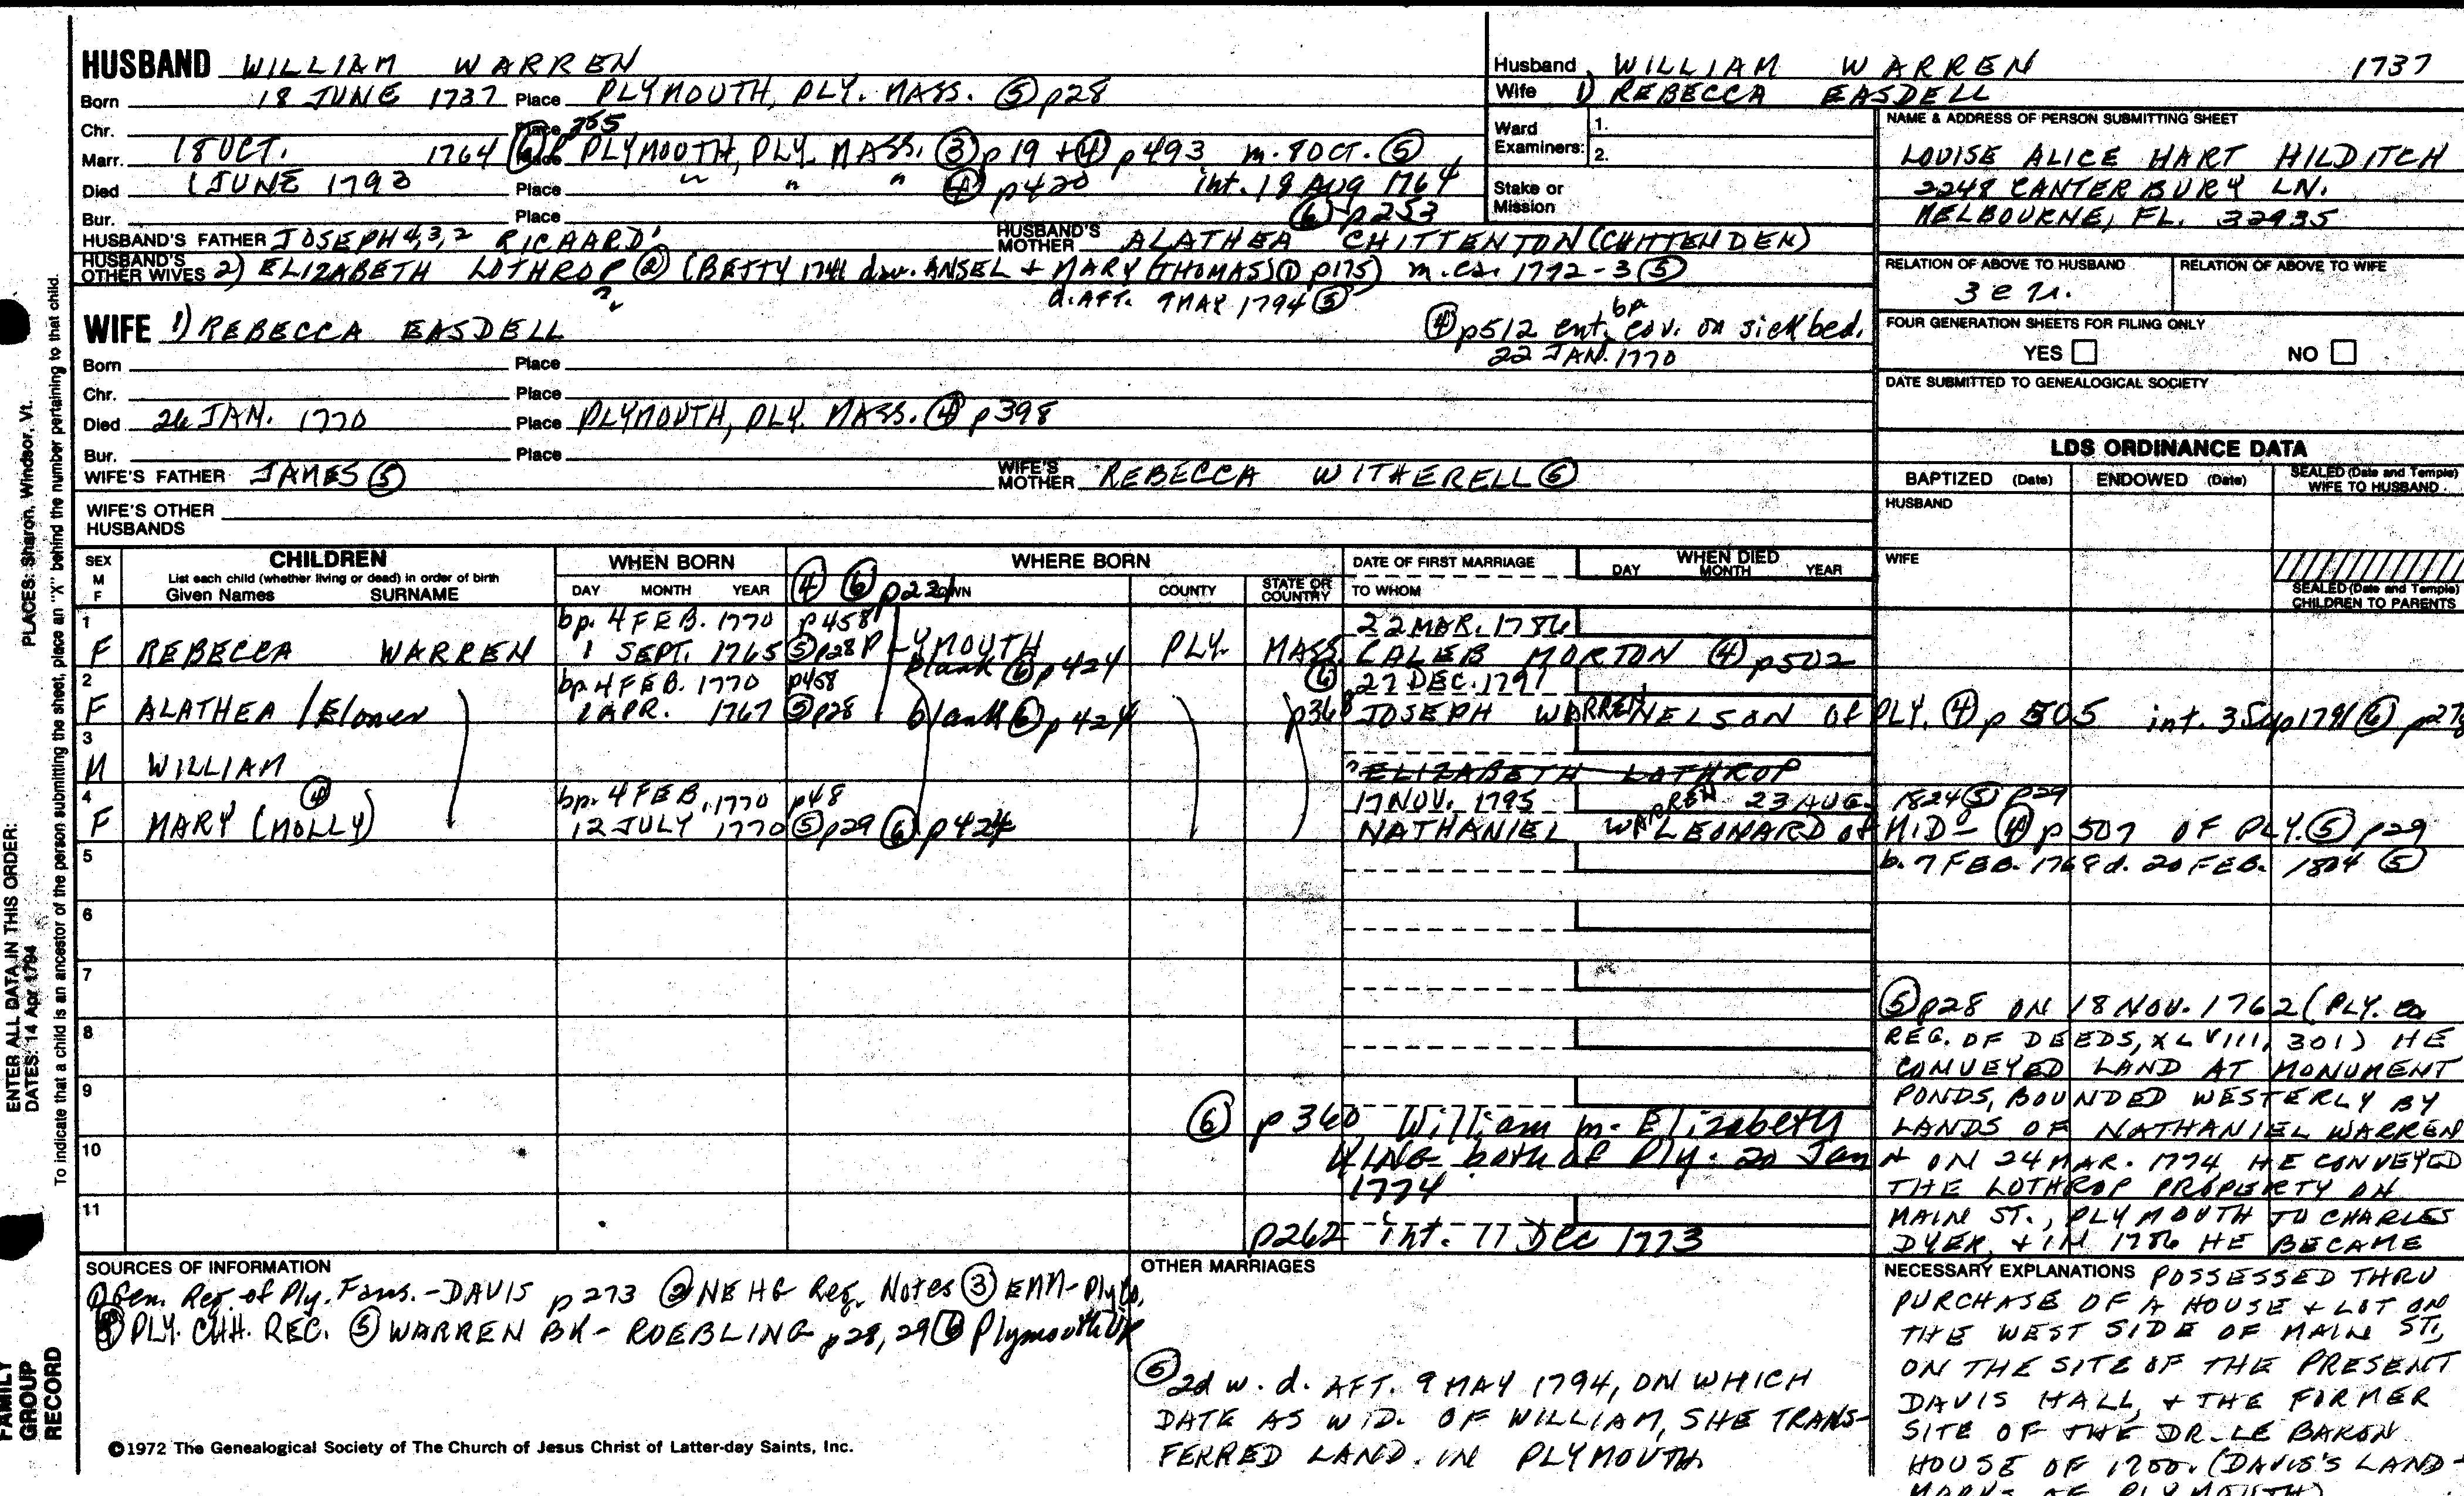 HUSBAND WILLIAM WARREN
Born 18 JUNE 1737 Place PLYMOUTH, PLY. MASS. ⑤ p28
Chr. Place 255
Marr. 18 OCT. 1764 ⑥ p PLYMOUTH, PLY. MASS. ③ p19 + ④ p493 m. 8 OCT. ⑤
Died 1 JUNE 1793 Place " " " ④ p420 int. 18 Aug 1764
Bur. Place ⑥ p253
HUSBAND'S FATHER JOSEPH 4,3,2 RICHARD1 HUSBAND'S MOTHER ALATHEA CHITTENTON (CHITTENDEN)
HUSBAND'S OTHER WIVES 2) ELIZABETH LOTHROP ② (BETTY 1741 dau. ANSEL + MARY (THOMAS) ① p175) m. ca. 1772-3 ⑤
? d. AFT. 9 MAY 1794 ⑤
WIFE 1) REBECCA EASDELL
④ p512 ent. bp cov. on sick bed.
22 JAN. 1770
Born Place
Chr. Place
Died 26 JAN. 1770 Place PLYMOUTH, PLY. MASS. ④ p398
Bur. Place
WIFE'S FATHER JAMES ⑤ WIFE'S MOTHER REBECCA WITHERELL ⑥
WIFE'S OTHER HUSBANDS
Husband WILLIAM WARREN 1737
Wife 1) REBECCA EASDELL
Ward Examiners: 1.
2.
Stake or Mission
NAME & ADDRESS OF PERSON SUBMITTING SHEET
LOUISE ALICE HART HILDITCH
2248 CANTERBURY LN.
MELBOURNE, FL. 32935
RELATION OF ABOVE TO HUSBAND RELATION OF ABOVE TO WIFE
FOUR GENERATION SHEETS FOR FILING ONLY
YES NO
DATE SUBMITTED TO GENEALOGICAL SOCIETY
LDS ORDINANCE DATA
BAPTIZED (Date) ENDOWED (Date) SEALED (Date and Temple) WIFE TO HUSBAND
HUSBAND
WIFE
SEALED (Date and Temple) CHILDREN TO PARENTS
SEX M F CHILDREN List each child (whether living or dead) in order of birth Given Names SURNAME
WHEN BORN DAY MONTH YEAR
WHERE BORN ④ ⑥ p230 TOWN COUNTY STATE OR COUNTRY
DATE OF FIRST MARRIAGE TO WHOM
WHEN DIED DAY MONTH YEAR
1 bp. 4 FEB. 1770 p458 22 MAR. 1786
F REBECCA WARREN 1 SEPT. 1765 ⑤ p28 PLYMOUTH PLY. MASS. CALEB MORTON ④ p502
blank ⑥ p424
2 bp 4 FEB. 1770 p458 ⑥ 27 DEC. 1791
F ALATHEA / Eloner 1 APR. 1767 ⑤ p28 blank ⑥ p424 p360 JOSEPH WARREN NELSON of PLY. ④ p505 int. 3 Sep 1791 ⑥ p278
3
M WILLIAM ? ELIZABETH LOTHROP
4 bp. 4 FEB. 1770 p48 17 NOV. 1795 23 AUG. 1824 ⑤ p29
F MARY (MOLLY) ④ 12 JULY 1770 ⑤ p29 ⑥ p424 NATHANIEL WARREN LEONARD of MID- ④ p507 OF PLY. ⑤ p29
b. 7 FEB. 1768 d. 20 FEB. 1804 ⑤
5
6
7
8
9
⑥ p360 William m. Elizabeth
10 KING both of Ply. 20 Jan
1774
11
p262 int. 11 Dec 1773
⑤ p28 ON 18 NOV. 1762 (PLY. Co
REG. OF DEEDS, XLVIII, 301) HE
CONVEYED LAND AT MONUMENT
PONDS, BOUNDED WESTERLY BY
LANDS OF NATHANIEL WARREN
+ ON 24 MAR. 1774 HE CONVEYED
THE LOTHROP PROPERTY ON
MAIN ST., PLYMOUTH TO CHARLES
DYER, + IN 1786 HE BECAME
NECESSARY EXPLANATIONS POSSESSED THRU
PURCHASE OF A HOUSE + LOT ON
THE WEST SIDE OF MAIN ST,
ON THE SITE OF THE PRESENT
DAVIS HALL, + THE FORMER
SITE OF THE DR. LE BARON
HOUSE OF 1700. (DAVIS'S LAND-
MARKS OF PLYMOUTH)
SOURCES OF INFORMATION
① Gen. Reg. of Ply. Fams. - DAVIS p273 ② NEHG Reg. Notes ③ EMM-Ply Co,
④ PLY. CHH. REC. ⑤ WARREN BK - ROEBLING p28, 29 ⑥ Plymouth VR
OTHER MARRIAGES
⑤ 2d w. d. AFT. 9 MAY 1794, ON WHICH
DATE AS WID. OF WILLIAM, SHE TRANS-
FERRED LAND. IN PLYMOUTH.
©1972 The Genealogical Society of The Church of Jesus Christ of Latter-day Saints, Inc.
FAMILY GROUP RECORD
ENTER ALL DATA IN THIS ORDER:
DATES: 14 Apr 1794
PLACES: Sharon, Windsor, Vt.
To indicate that a child is an ancestor of the person submitting the sheet, place an "X" behind the number pertaining to that child.